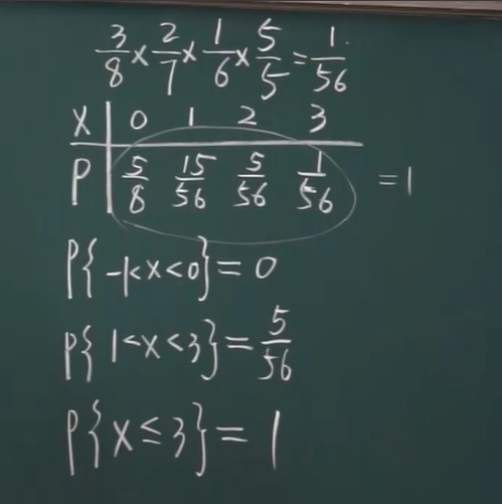 3/8 × 2/7 × 1/6 × 5/5 = 1/56
X | 0 1 2 3
P | 5/8 15/56 5/56 1/56 = 1
P{-1<x<0} = 0
P{1<x<3} = 5/56
P{x≤3} = 1